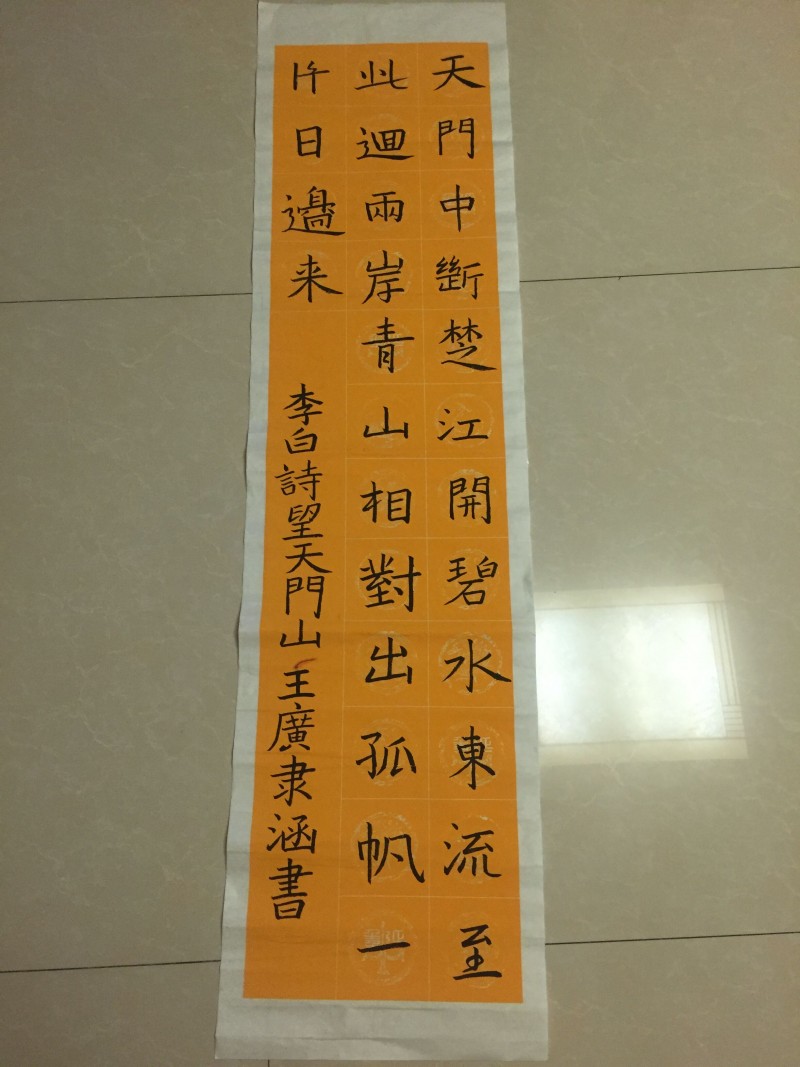 天門中斷楚江開碧水東流至
此迴兩岸青山相對出孤帆一
片日邊来
李白詩望天門山 王廣隶涵書